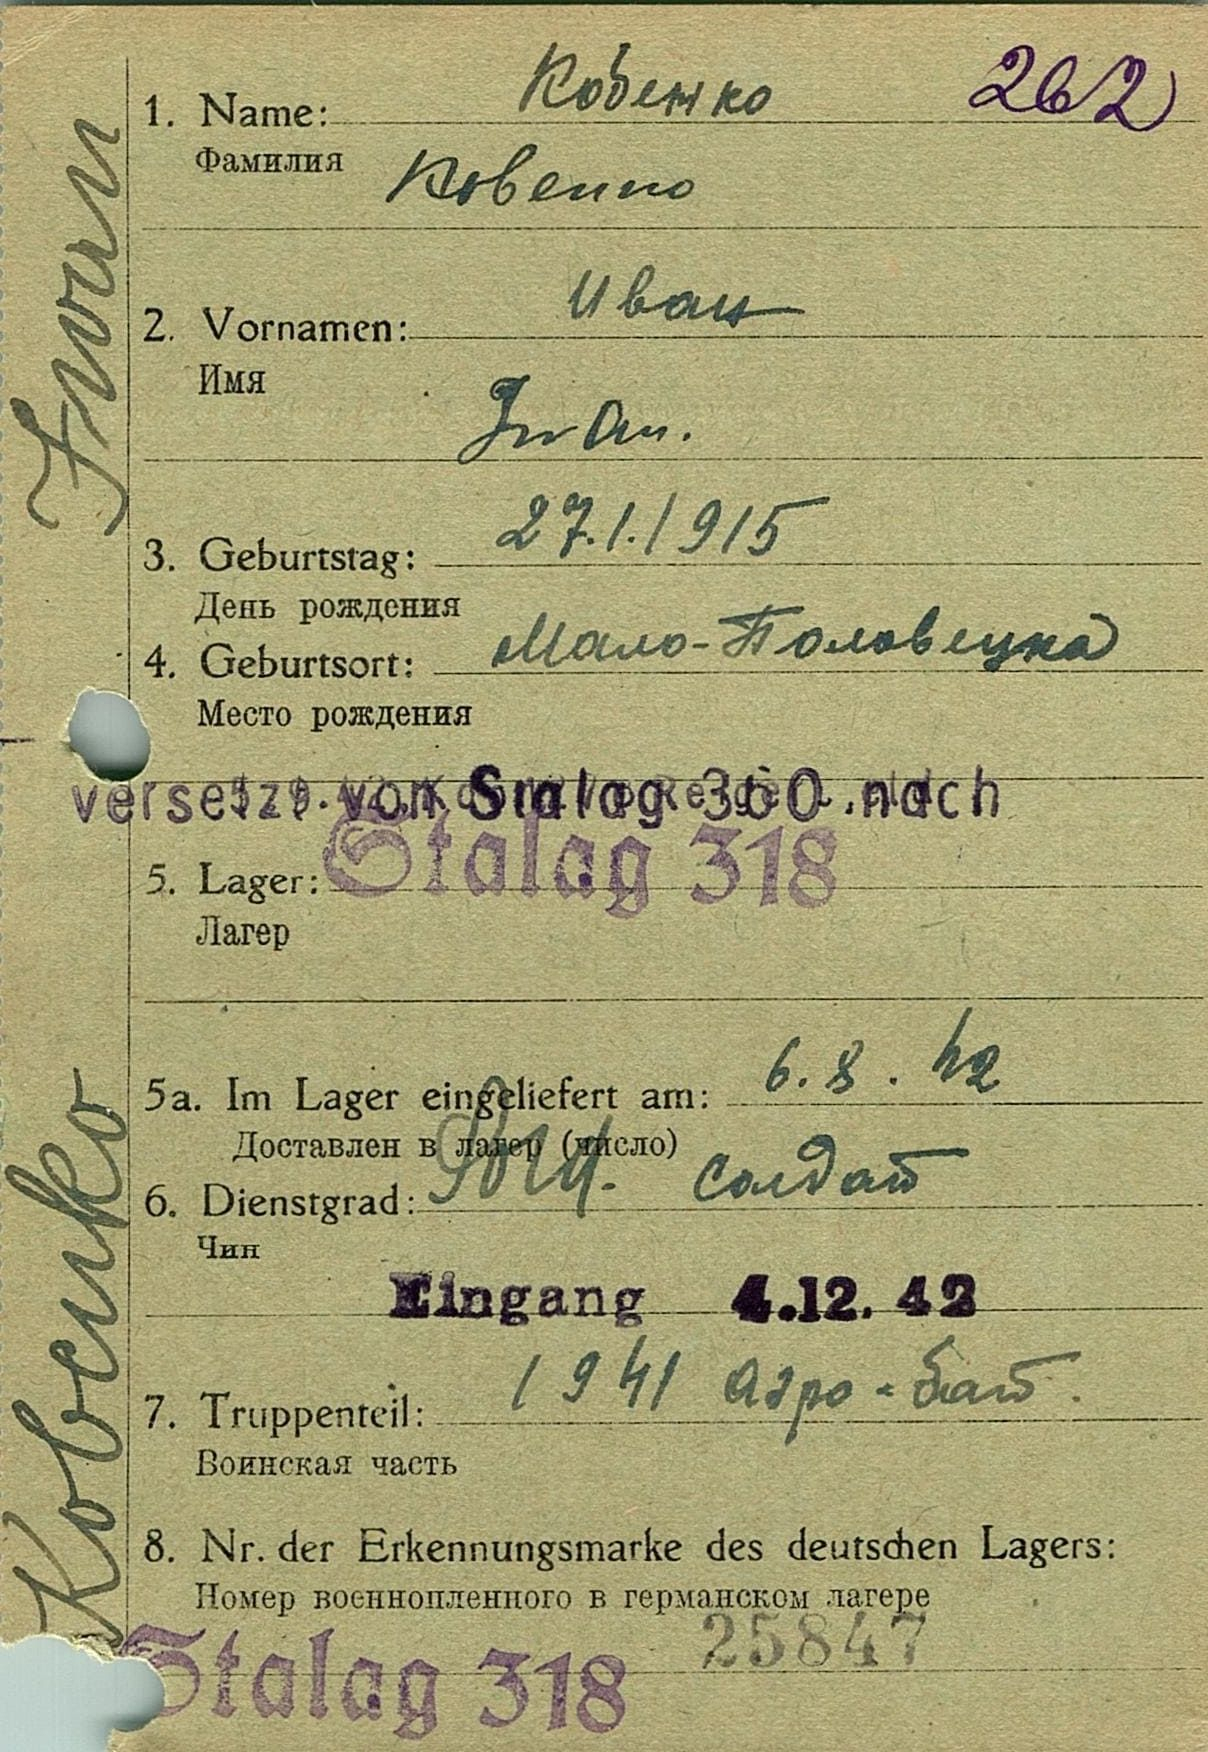 262
1. Name: Кобенко
Фамилия
Ковенко
2. Vornamen: Иван
Имя
Iwan.
3. Geburtstag: 27.1.1915
День рождения
4. Geburtsort: Мало-Половецка
Место рождения
versetzt von Stalag 360 nach
Stalag 318
5. Lager:
Лагер
5a. Im Lager eingeliefert am: 6.8.42
Доставлен в лагер (число)
6. Dienstgrad: солдат
Чин
Eingang 4.12.42
7. Truppenteil: 1941 Аэро-бат.
Воинская часть
8. Nr. der Erkennungsmarke des deutschen Lagers:
Номер военнопленного в германском лагере
25847
Stalag 318
Kobenko Iwan